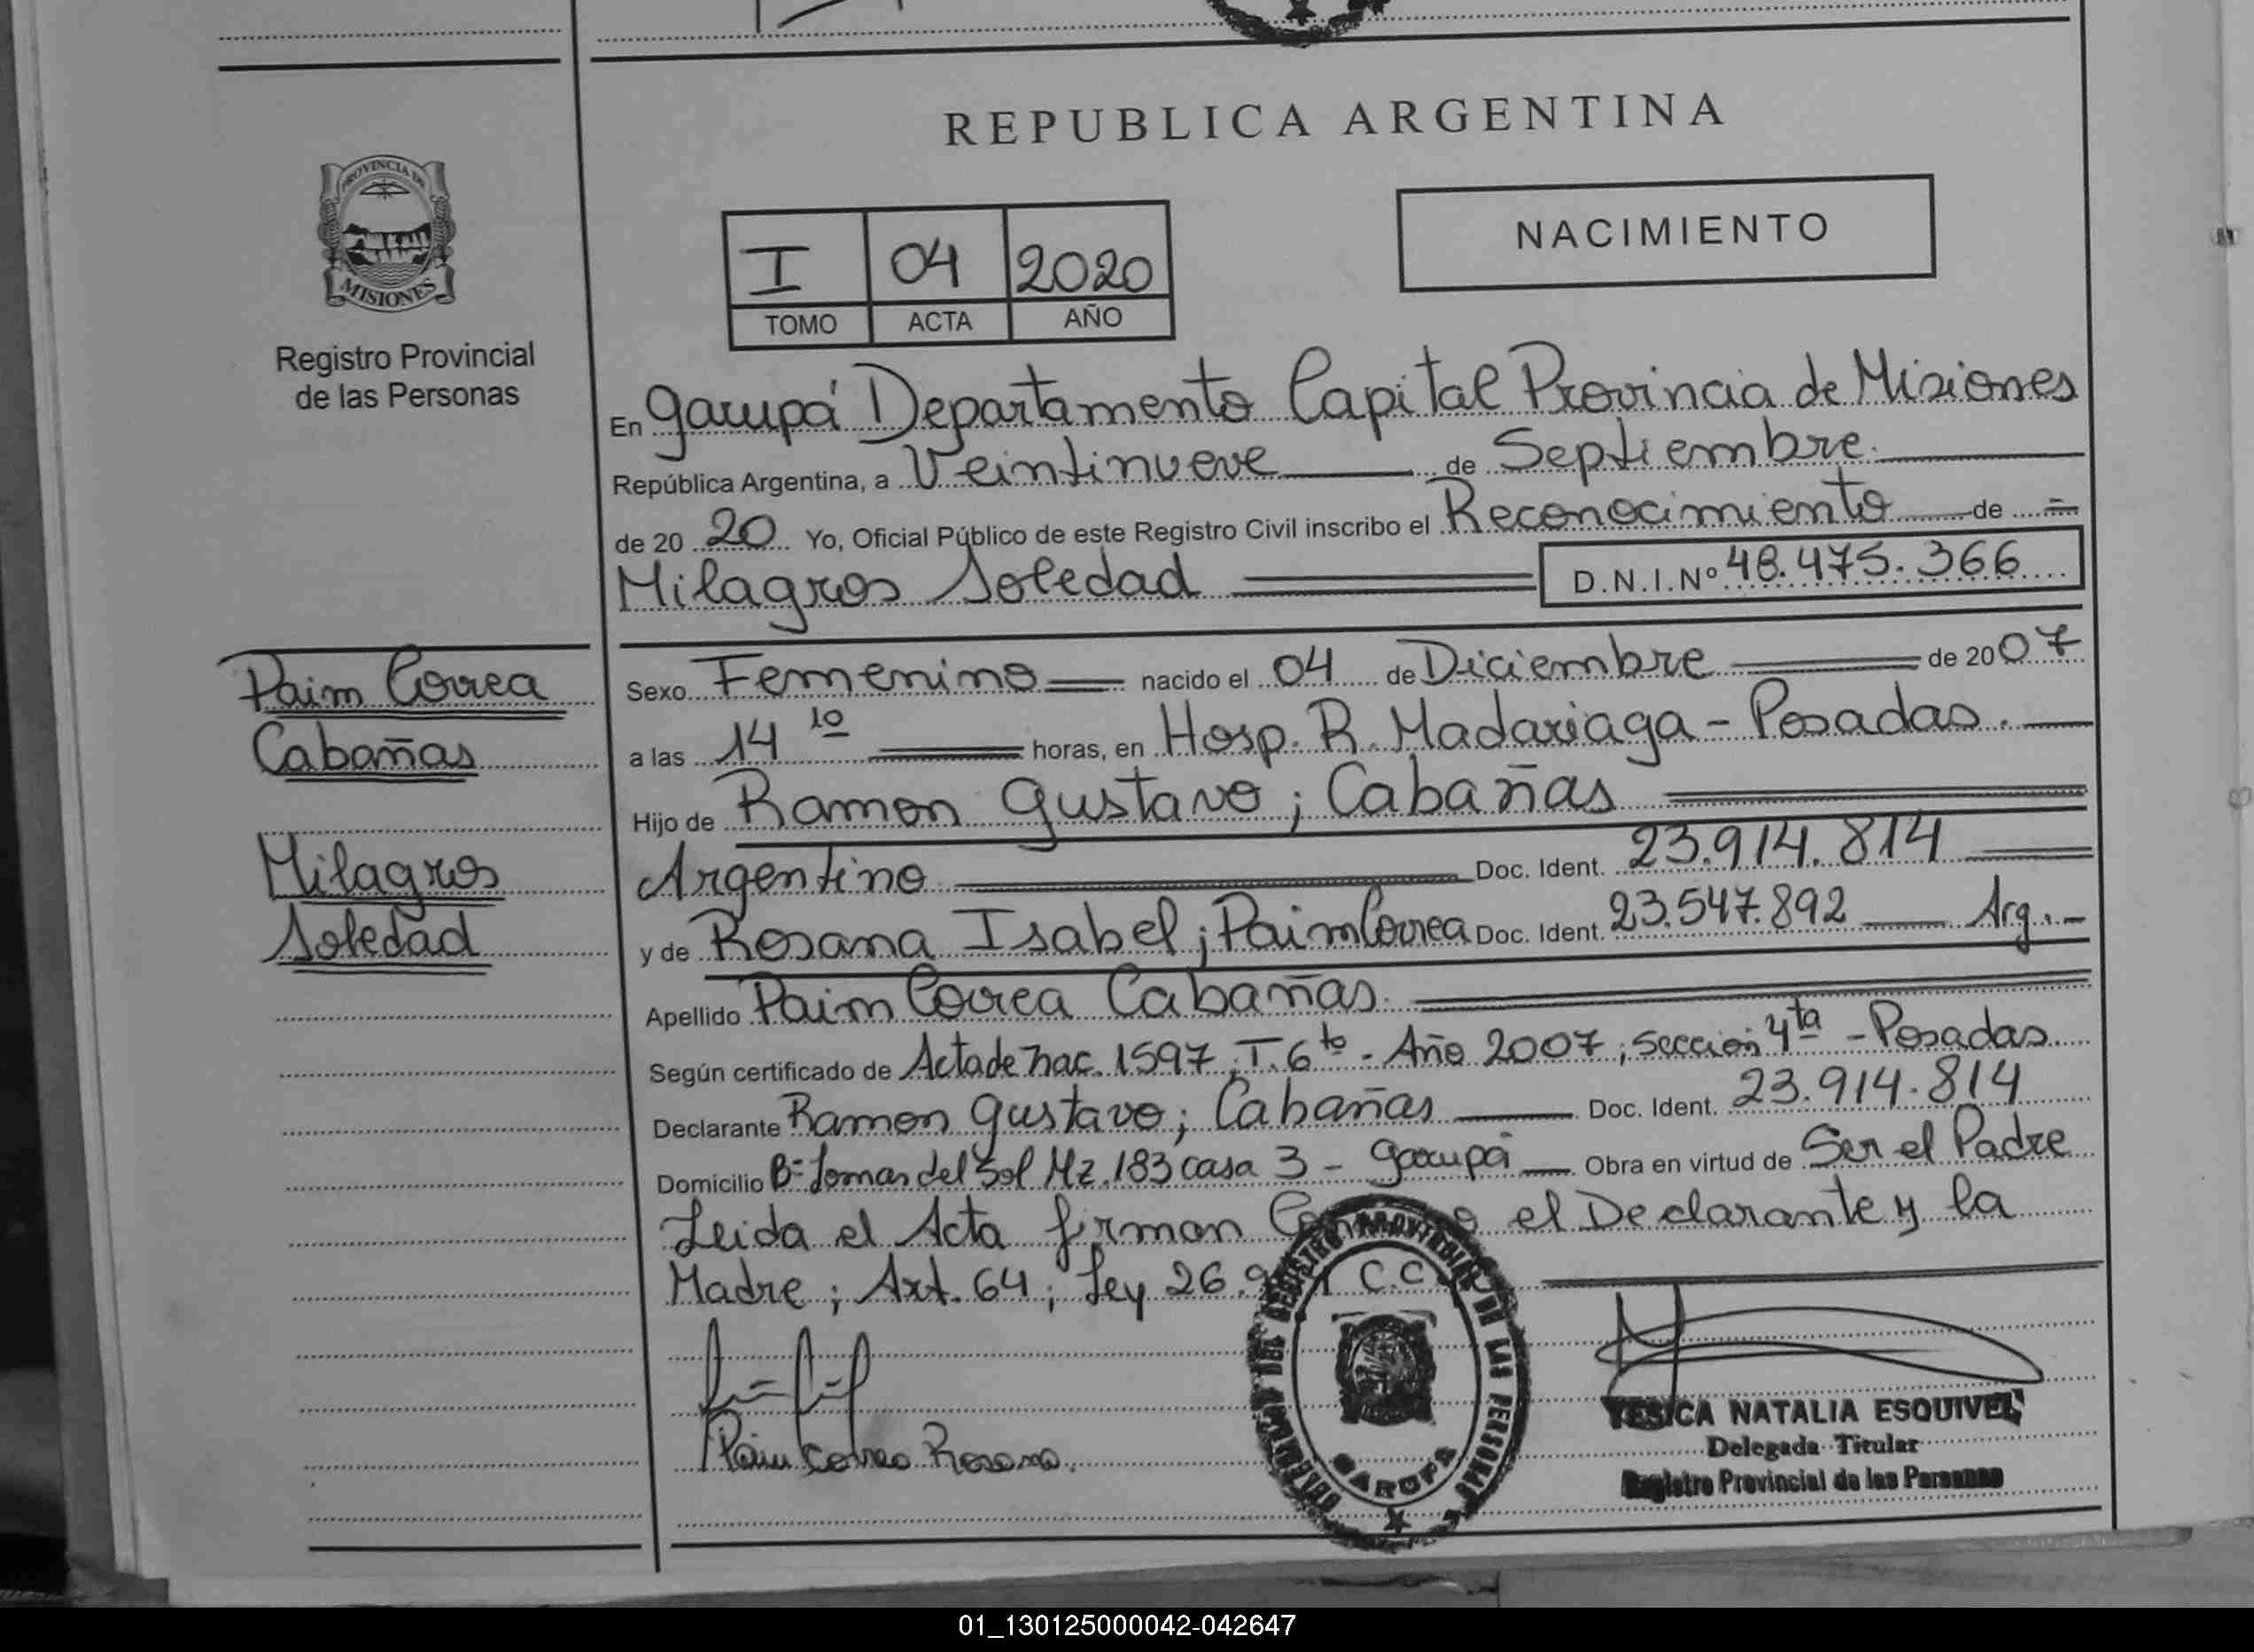 REPUBLICA ARGENTINA
PROVINCIA DE
MISIONES
Registro Provincial
de las Personas
NACIMIENTO
I 04 2020
TOMO ACTA AÑO
En Garupá Departamento Capital Provincia de Misiones
República Argentina, a Veintinueve de Septiembre.
de 20 20 Yo, Oficial Público de este Registro Civil inscribo el Reconocimiento de
Milagros Soledad D.N.I.Nº 48.475.366
Paim Correa
Cabañas
Milagros
Soledad
Sexo Femenino nacido el 04 de Diciembre de 2007
a las 14 10 horas, en Hosp. R. Madariaga - Posadas.
Hijo de Ramon Gustavo; Cabañas
Argentino Doc. Ident. 23.914.814
y de Rosana Isabel; Paim Correa Doc. Ident. 23.547.892 Arg.-
Apellido Paim Correa Cabañas.
Según certificado de Acta de Nac. 1597, T. 6to - Año 2007; Sección 4ta - Posadas.
Declarante Ramon Gustavo; Cabañas Doc. Ident. 23.914.814
Domicilio Bº Lomas del Sol Mz. 183 casa 3 - Garupá Obra en virtud de Ser el Padre
Leida el Acta firman el Declarante y la
Madre; Art. 64; Ley 26.9 C.C
Paim Correa Rosana.
DELEGADA DEL REGISTRO PROVINCIAL DE LAS PERSONAS
GARUPA
YESICA NATALIA ESQUIVEL
Delegada Titular
Registro Provincial de las Personas
01_130125000042-042647